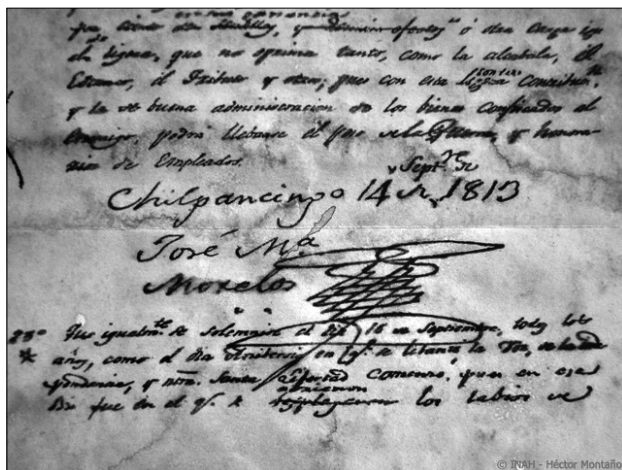 pr. ciento de semillas, y demas efectos ú otra carga igu
al, ligera, que no oprima tanto, como la alcabala, el
Estanco, el Tributo y otros; pues con esta ligera contribución
y la buena administracion de los bienes confiscados al
Enemigo, podrá llebarse el peso de la Guerra, y honora
rios de Empleados.
Chilpancingo 14 de Septe. de 1813
José Ma.
Morelos
23º Que igualmte. se solemnize el dia 16 de Septiembre, todos los
años, como el dia Aniversario en qe. se lebantó la Voz de la Inde
pendencia, y ntra. Santa Libertad comenzó, pues en ese
Dia fue en el qe. se desplegaron los labios de
© INAH - Héctor Montaño